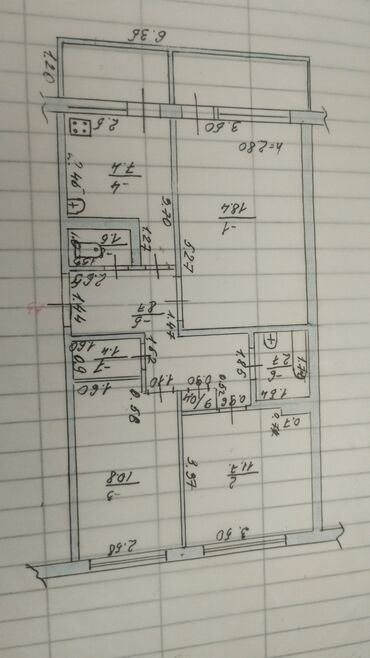 6.36
1.20
2.5
3.60
h=2.80
2.46
7.4
-4
2.70
18.4
-1
1.6
1.27
5.27
2.65
1.44
8.7
-5
1.47
1.60
1.4
-7
0.9
1.02
1.85
2.7
-6
1.70
1.60
1.10
0.90
0.52
0.96
1.84
0.58
9/0.4
0.7
3.97
10.8
-3
11.7
2
2.58
3.50